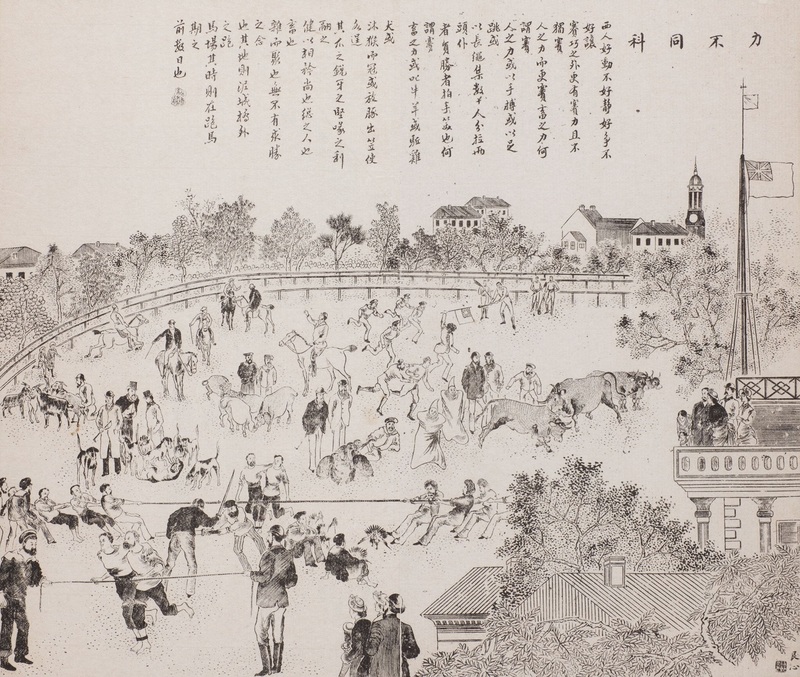 力不同科
西人好動不好靜好爭不
好讓
賽巧之外更有賽力且不
獨賽
人之力而更賽畜之力何
謂賽
人之力或以手搏或以足
跳或
以長繩集數十人分拉兩
頭仆
者負勝者拍手笑也何
謂賽
畜之力或以牛羊或駝雞
犬或
沐猴而冠或放豚出笠使
各逞
其爪之銳牙之堅喙之利
之
健以相誇尚也總之人也
畜也
也無不有求勝
之念
也其地則泥城橋外
之跑
馬場其時則在跑馬
期之
前數日也
艮心